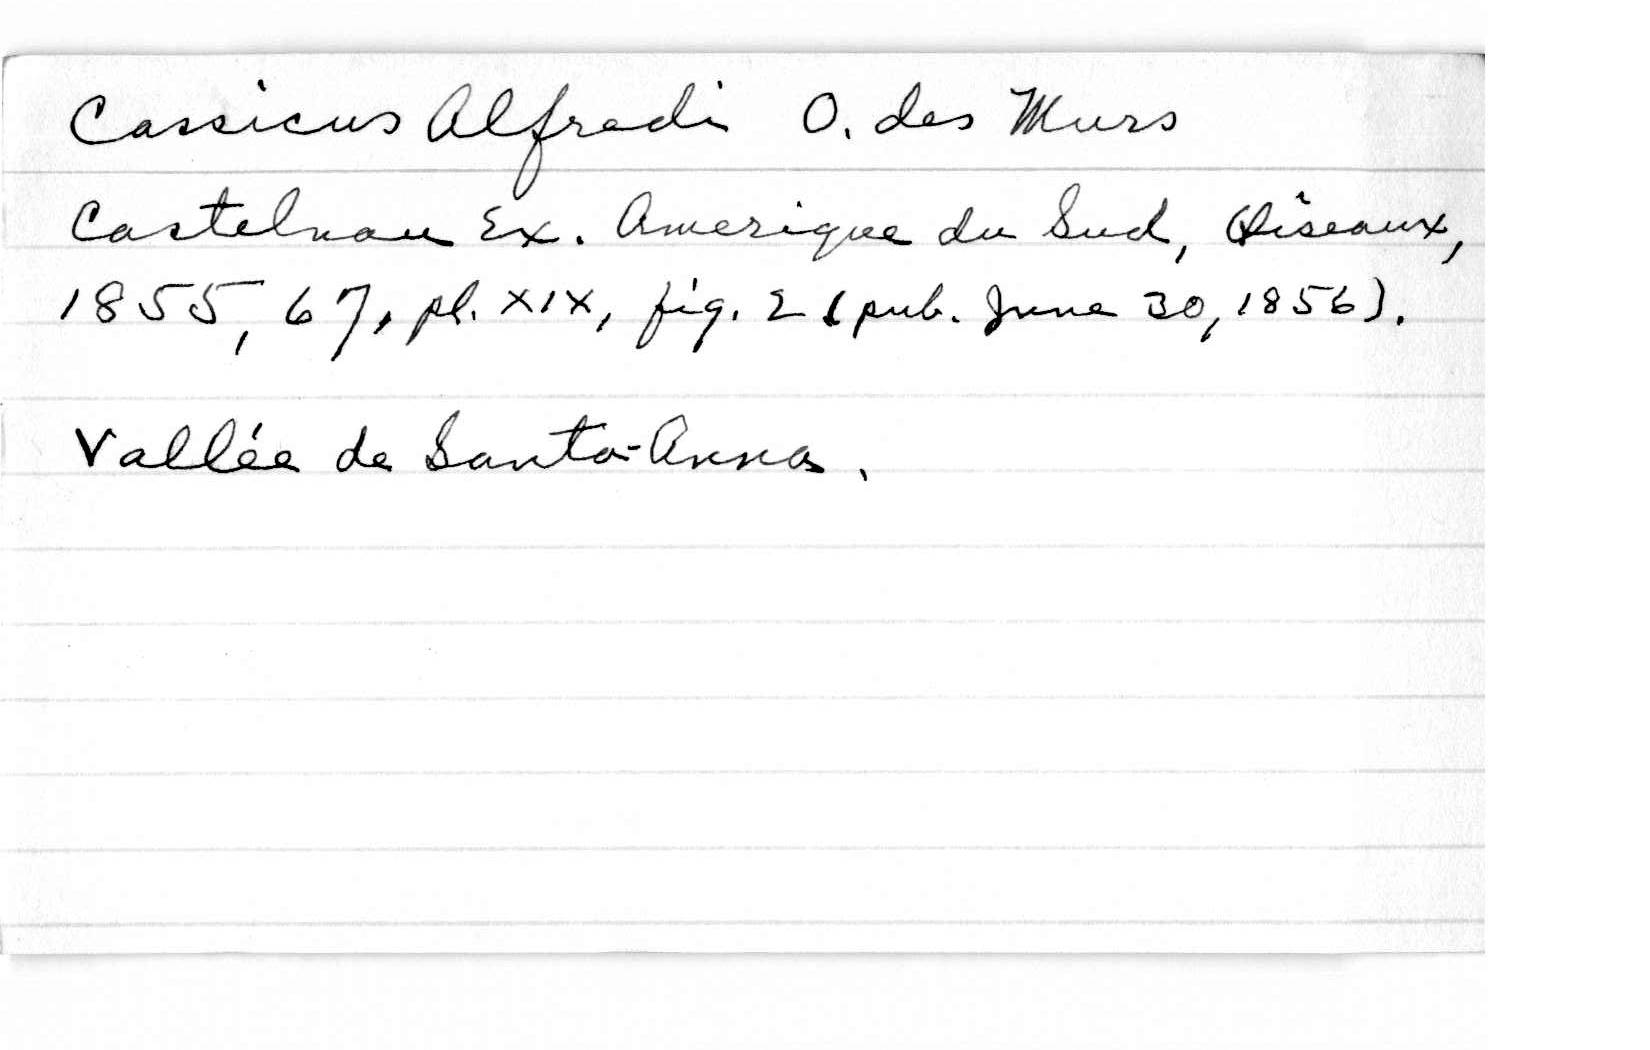 Cassicus Alfredi O. des Murs
Castelnau Ex. Amerique du Sud, Oiseaux,
1855, 67, pl. XIX, fig. 2 (pub. June 30, 1856).
Vallée de Santa-Anna.